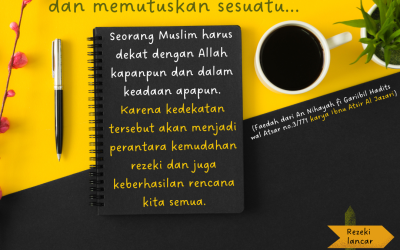 dan memutuskan sesuatu...
Seorang Muslim harus
dekat dengan Allah
kapanpun dan dalam
keadaan apapun.
Karena kedekatan
tersebut akan menjadi
perantara kemudahan
rezeki dan juga
keberhasilan rencana
kita semua.
(Faedah dari An Nihayah fi Gariibil Hadits
wal Atsar no.3/771 karya Ibnu Atsir Al Jazari)
Rezeki
lancar